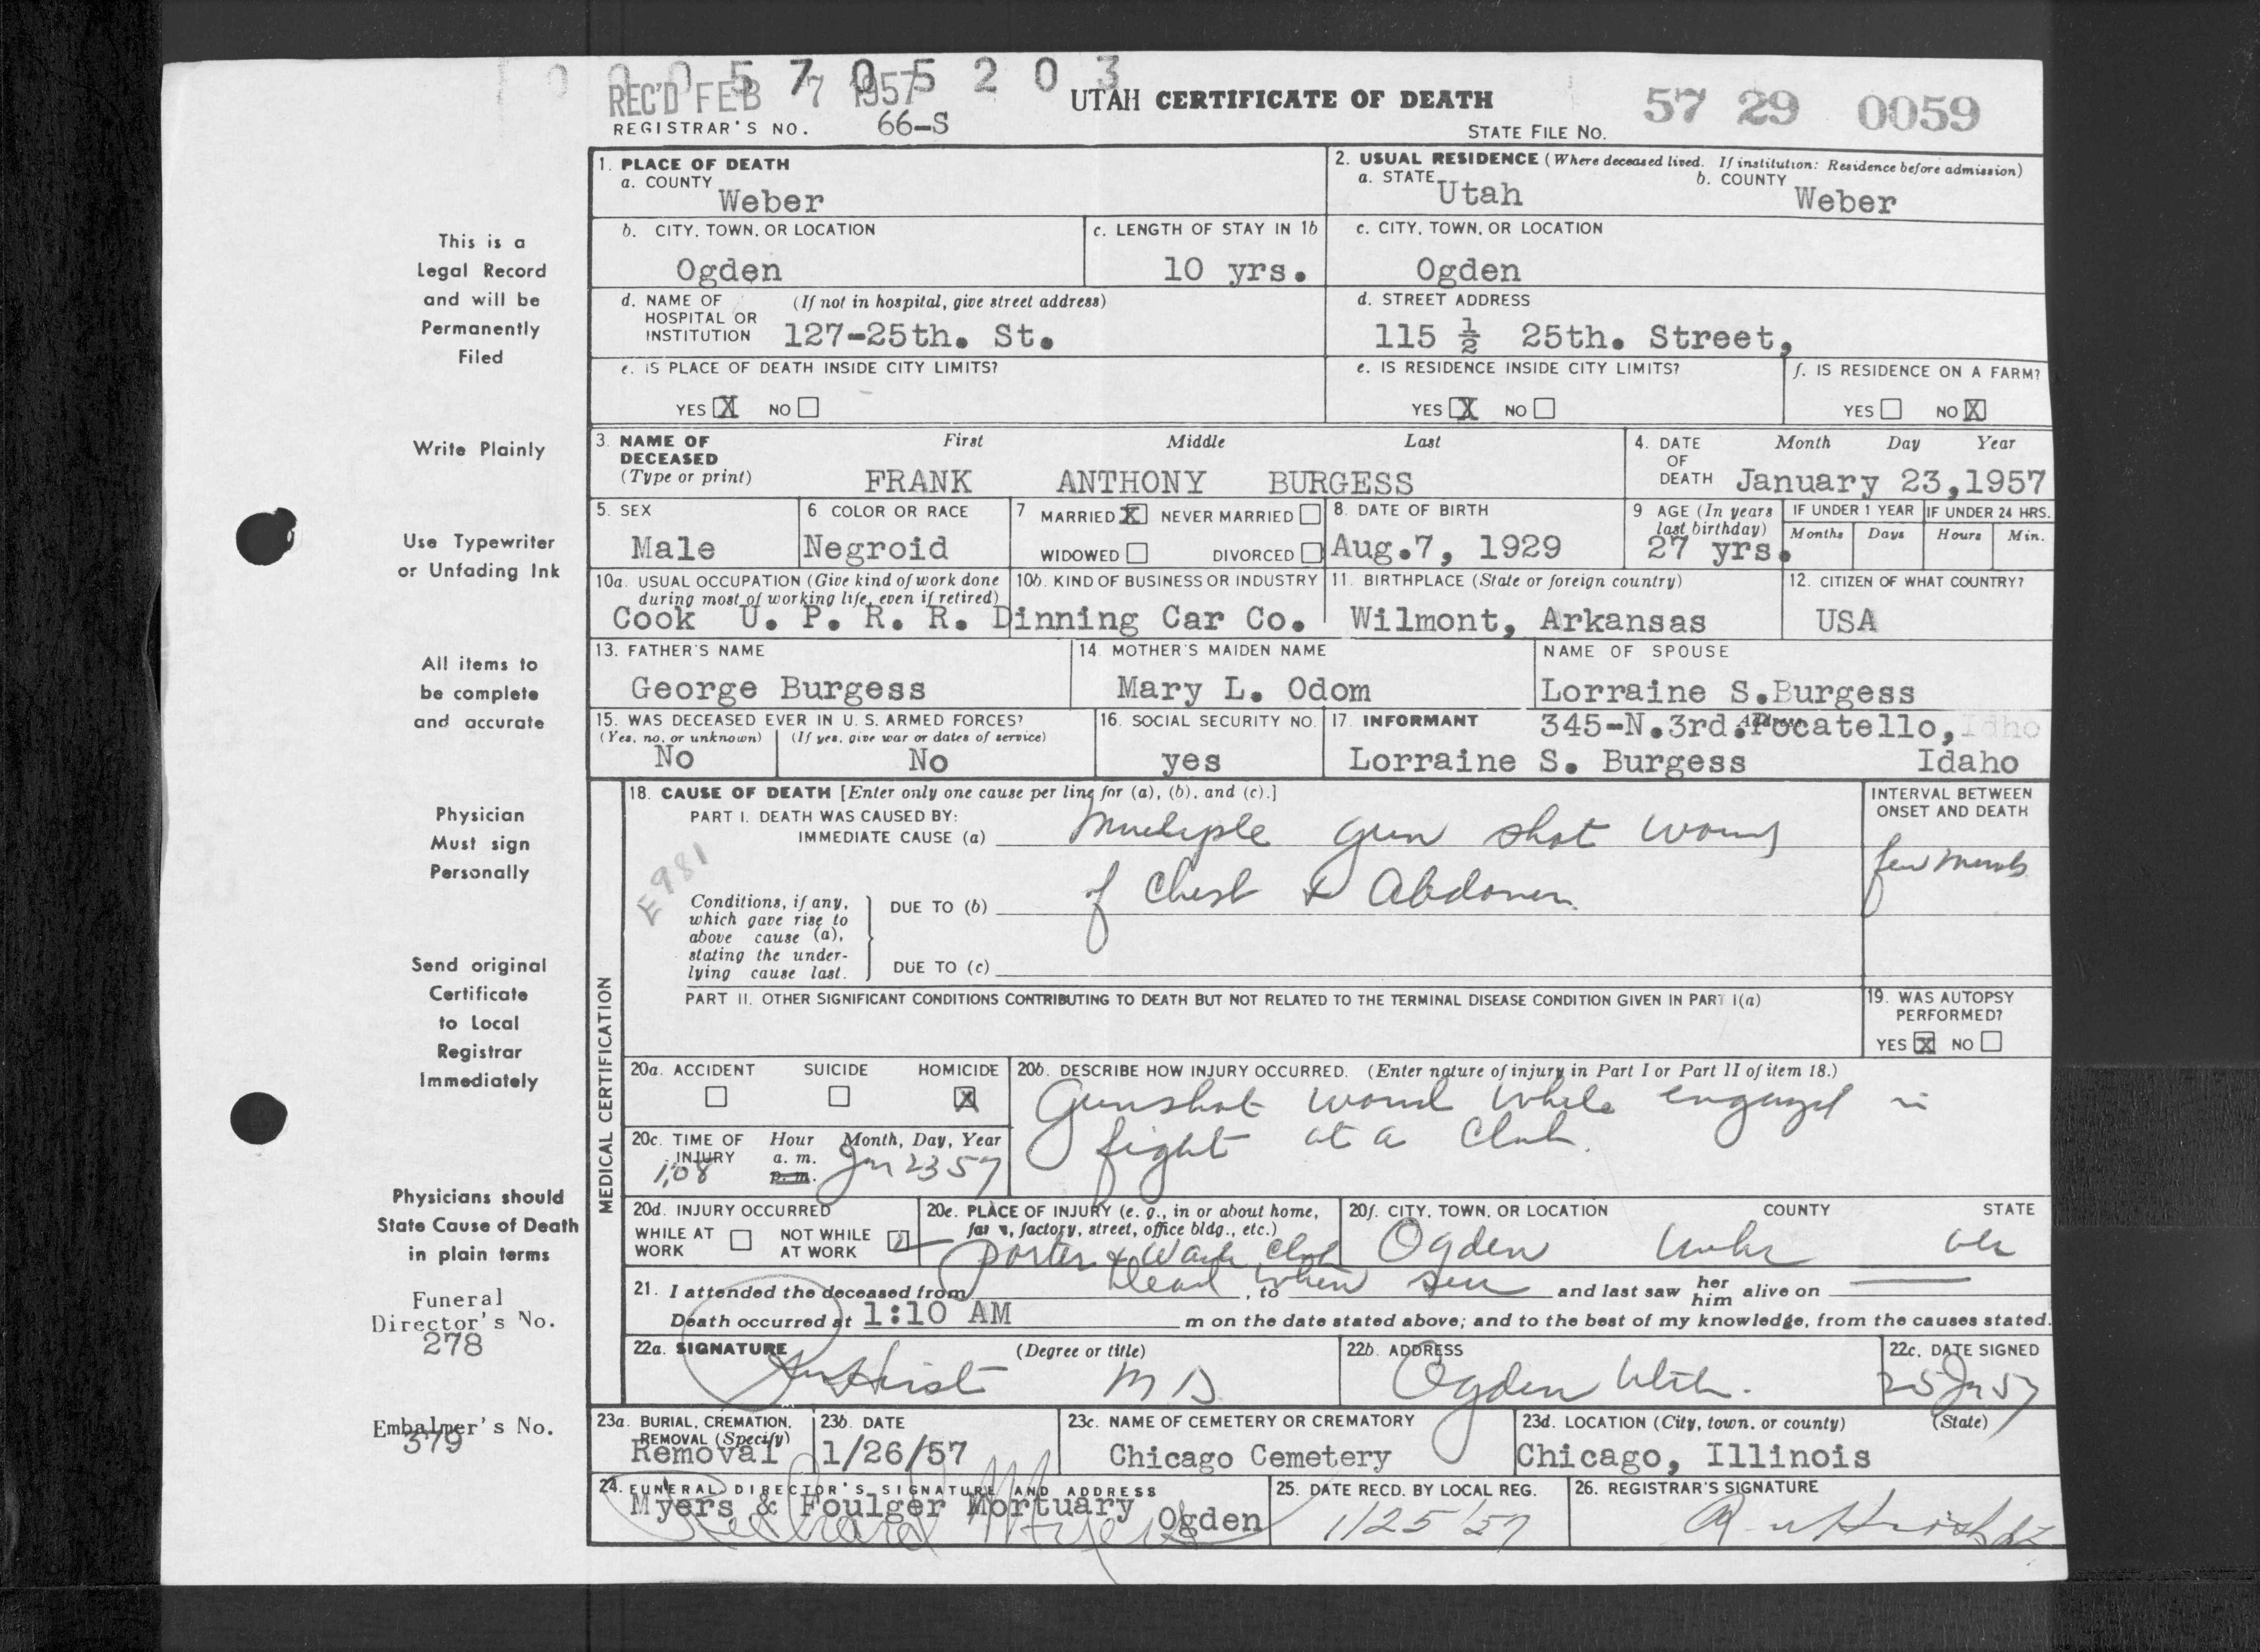 1 0 0 0 5 7 0 5 2 0 3
REC'D FEB 7 1957
UTAH CERTIFICATE OF DEATH
57 29 0059
REGISTRAR'S NO. 66-S
STATE FILE NO.
This is a
Legal Record
and will be
Permanently
Filed
Write Plainly
Use Typewriter
or Unfading Ink
All items to
be complete
and accurate
Physician
Must sign
Personally
Send original
Certificate
to Local
Registrar
Immediately
Physicians should
State Cause of Death
in plain terms
Funeral
Director's No.
278
Embalmer's No.
379
1. PLACE OF DEATH
a. COUNTY
Weber
2. USUAL RESIDENCE (Where deceased lived. If institution: Residence before admission)
a. STATE Utah b. COUNTY Weber
b. CITY, TOWN, OR LOCATION
Ogden
c. LENGTH OF STAY IN 1b
10 yrs.
c. CITY, TOWN, OR LOCATION
Ogden
d. NAME OF (If not in hospital, give street address)
HOSPITAL OR
INSTITUTION 127-25th. St.
d. STREET ADDRESS
115 ½ 25th. Street,
e. IS PLACE OF DEATH INSIDE CITY LIMITS?
YES X NO
e. IS RESIDENCE INSIDE CITY LIMITS?
YES X NO
f. IS RESIDENCE ON A FARM?
YES NO X
3. NAME OF DECEASED
(Type or print)
First Middle Last
FRANK ANTHONY BURGESS
4. DATE OF DEATH
Month Day Year
January 23,1957
5. SEX
Male
6 COLOR OR RACE
Negroid
7 MARRIED X NEVER MARRIED
WIDOWED DIVORCED
8. DATE OF BIRTH
Aug.7, 1929
9 AGE (In years
last birthday)
27 yrs.
IF UNDER 1 YEAR
Months Days
IF UNDER 24 HRS.
Hours Min.
10a. USUAL OCCUPATION (Give kind of work done
during most of working life, even if retired)
10b. KIND OF BUSINESS OR INDUSTRY
Cook U. P. R. R. Dinning Car Co.
11. BIRTHPLACE (State or foreign country)
Wilmont, Arkansas
12. CITIZEN OF WHAT COUNTRY?
USA
13. FATHER'S NAME
George Burgess
14. MOTHER'S MAIDEN NAME
Mary L. Odom
NAME OF SPOUSE
Lorraine S.Burgess
15. WAS DECEASED EVER IN U. S. ARMED FORCES?
(Yes, no, or unknown) (If yes, give war or dates of service)
No No
16. SOCIAL SECURITY NO.
yes
17. INFORMANT Address
345-N.3rd.Pocatello, Idho
Lorraine S. Burgess Idaho
MEDICAL CERTIFICATION
18. CAUSE OF DEATH [Enter only one cause per line for (a), (b), and (c).]
PART I. DEATH WAS CAUSED BY:
IMMEDIATE CAUSE (a) Multiple gun shot wounds
E981
Conditions, if any,
which gave rise to
above cause (a),
stating the under-
lying cause last.
DUE TO (b) of Chest & Abdomen
DUE TO (c)
INTERVAL BETWEEN
ONSET AND DEATH
few
PART II. OTHER SIGNIFICANT CONDITIONS CONTRIBUTING TO DEATH BUT NOT RELATED TO THE TERMINAL DISEASE CONDITION GIVEN IN PART I(a)
19. WAS AUTOPSY
PERFORMED?
YES X NO
20a. ACCIDENT SUICIDE HOMICIDE
X
20b. DESCRIBE HOW INJURY OCCURRED. (Enter nature of injury in Part I or Part II of item 18.)
Gunshot wound while engaged in
fight at a Club.
20c. TIME OF Hour Month, Day, Year
INJURY a. m.
p. m.
1:08 Jan 23 57
20d. INJURY OCCURRED
WHILE AT WORK NOT WHILE AT WORK
20e. PLACE OF INJURY (e. g., in or about home,
farm, factory, street, office bldg., etc.)
Porter & Club
20f. CITY, TOWN, OR LOCATION COUNTY STATE
Ogden
21. I attended the deceased from Dead, to when seen and last saw her him alive on
Death occurred at 1:10 AM m on the date stated above; and to the best of my knowledge, from the causes stated.
22a. SIGNATURE (Degree or title)
M D
22b. ADDRESS
Ogden Utah.
22c. DATE SIGNED
25 Jan 57
23a. BURIAL, CREMATION,
REMOVAL (Specify)
Removal
23b. DATE
1/26/57
23c. NAME OF CEMETERY OR CREMATORY
Chicago Cemetery
23d. LOCATION (City, town, or county) (State)
Chicago, Illinois
24. FUNERAL DIRECTOR'S SIGNATURE AND ADDRESS
Myers & Foulger Mortuary Ogden
25. DATE RECD. BY LOCAL REG.
1/25/57
26. REGISTRAR'S SIGNATURE